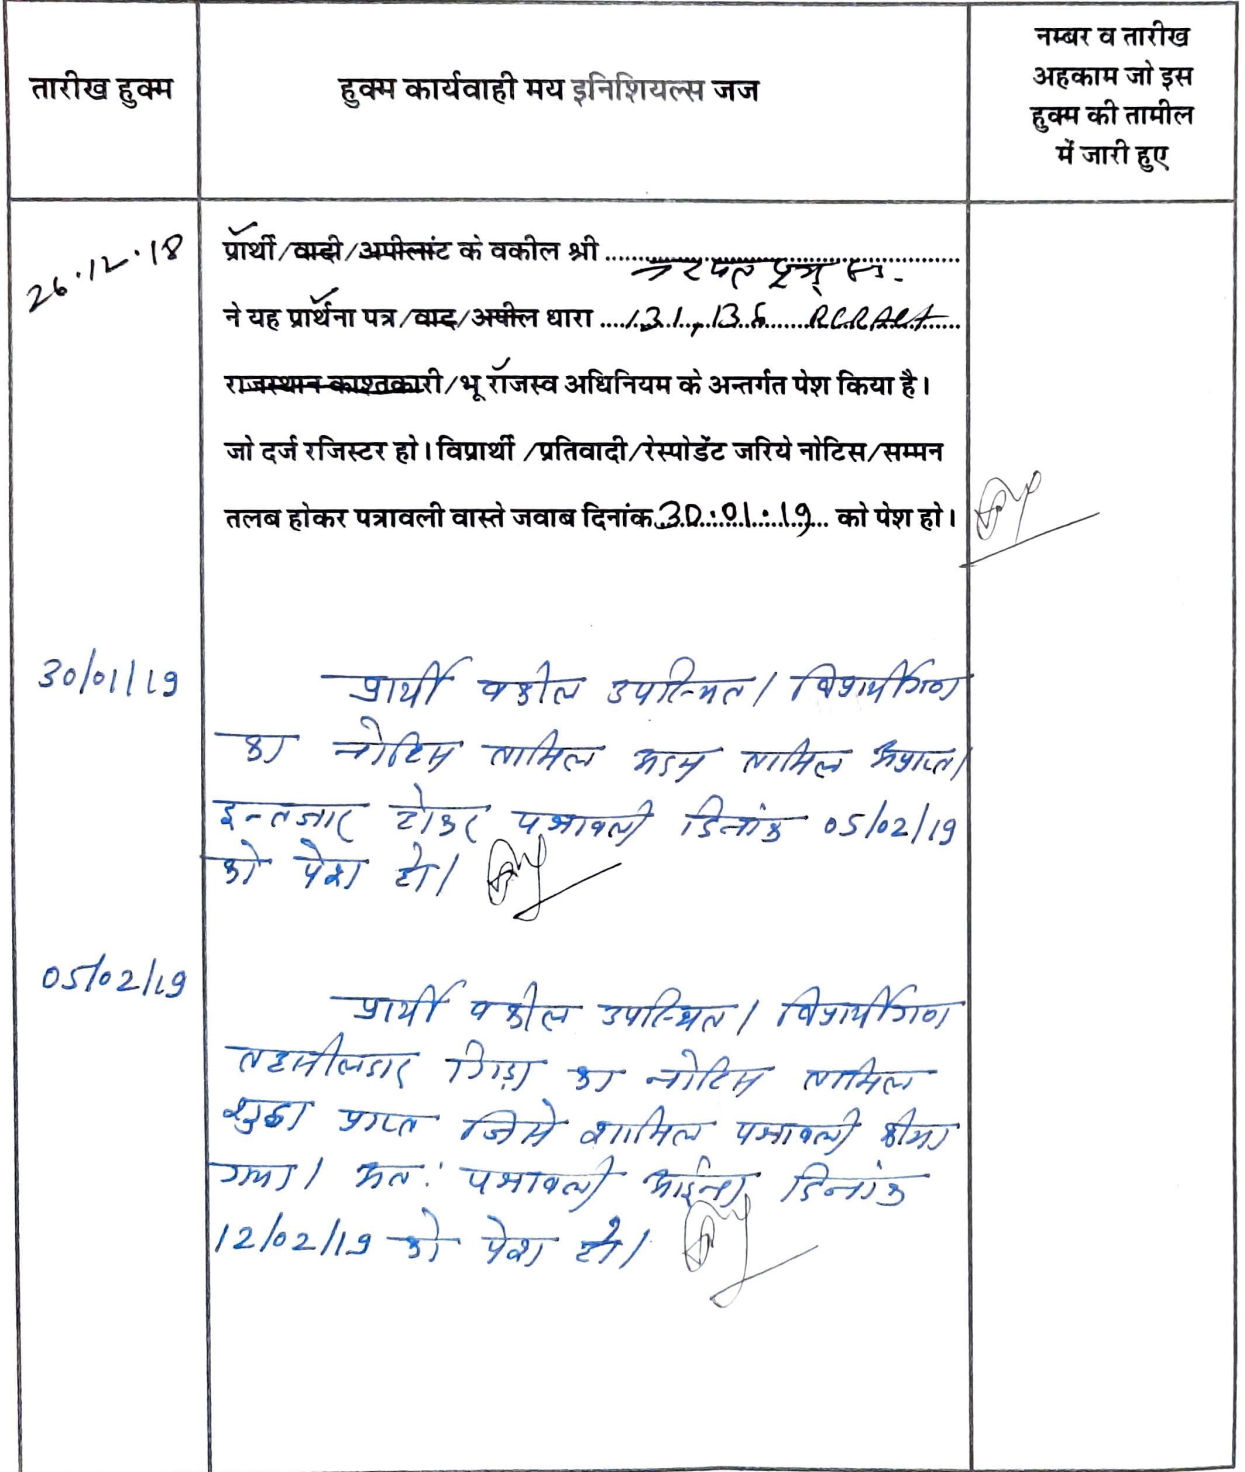 तारीख हुक्म
हुक्म कार्यवाही मय इनिशियल्स जज
नम्बर व तारीख
अहकाम जो इस
हुक्म की तामील
में जारी हुए
26.12.18
प्रार्थी/वादी/अपीलांट के वकील श्री
ने यह प्रार्थना पत्र/वाद/अपील धारा 131, 136 RLRAct
राजस्थान काश्तकारी/भू राजस्व अधिनियम के अन्तर्गत पेश किया है।
जो दर्ज रजिस्टर हो। विप्रार्थी/प्रतिवादी/रेस्पोडेंट जरिये नोटिस/सम्मन
तलब होकर पत्रावली वास्ते जवाब दिनांक 30.01.19 को पेश हो।
30/01/19
प्रार्थी वकील उपस्थित। विप्रार्थीगण
का नोटिस तामिल अदम तामिल अप्राप्त।
इन्तजार होकर पत्रावली दिनांक 05/02/19
को पेश हो।
05/02/19
प्रार्थी वकील उपस्थित। विप्रार्थीगण
तहसीलदार गिड़ा का नोटिस तामिल
शुदा प्राप्त जिसे शामिल पत्रावली कीया
गया। अतः पत्रावली आईन्दा दिनांक
12/02/19 को पेश हो।